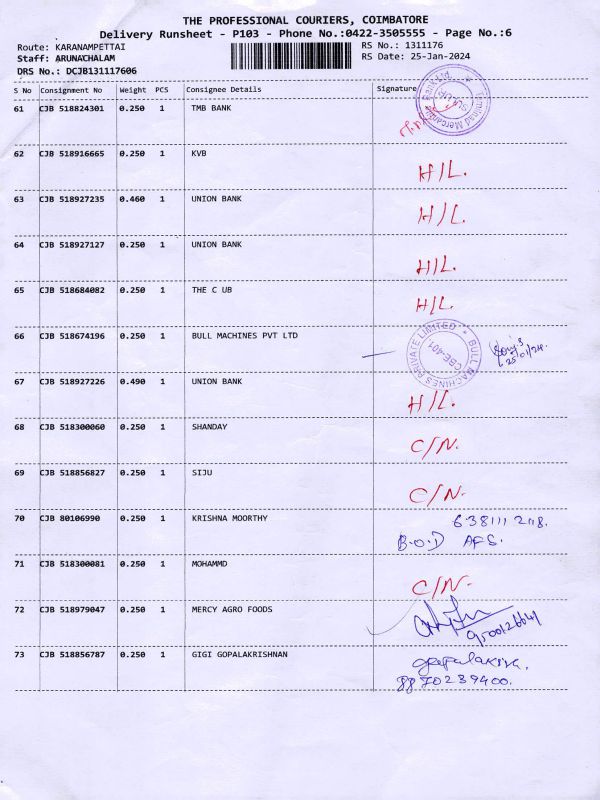 THE PROFESSIONAL COURIERS, COIMBATORE
Delivery Runsheet - P103 - Phone No.:0422-3505555 - Page No.:6
Route: KARANAMPETTAI RS No.: 1311176
Staff: ARUNACHALAM RS Date: 25-Jan-2024
DRS No.: DCJB131117606
S No Consignment No Weight PCS Consignee Details Signature
61 CJB 518824301 0.250 1 TMB BANK
62 CJB 518916665 0.250 1 KVB H/L.
63 CJB 518927235 0.460 1 UNION BANK H/L.
64 CJB 518927127 0.250 1 UNION BANK H/L.
65 CJB 518684082 0.250 1 THE C UB H/L.
66 CJB 518674196 0.250 1 BULL MACHINES PVT LTD
BULL MACHINES PRIVATE LIMITED ★
CBE-401
25/01/24
67 CJB 518927226 0.490 1 UNION BANK H/L.
68 CJB 518300060 0.250 1 SHANDAY C/N.
69 CJB 518856827 0.250 1 SIJU C/N.
70 CJB 80106990 0.250 1 KRISHNA MOORTHY
B.O.D AFS.
71 CJB 518300081 0.250 1 MOHAMMD C/N-
72 CJB 518979047 0.250 1 MERCY AGRO FOODS
73 CJB 518856787 0.250 1 GIGI GOPALAKRISHNAN
8870239400.